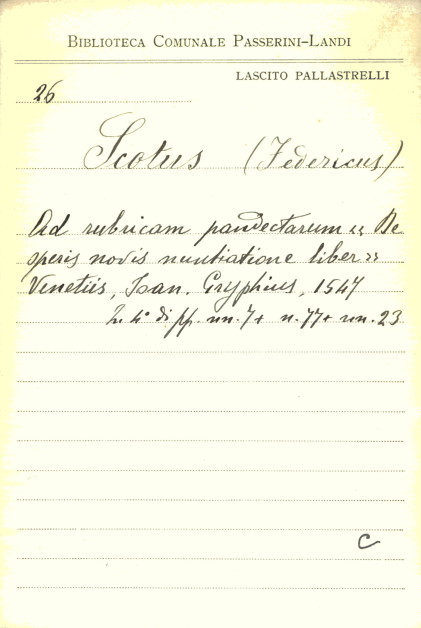 BIBLIOTECA COMUNALE PASSERINI-LANDI
LASCITO PALLASTRELLI
26
Scotus (Federicus)
Ad rubricam pandectarum « De
operis novis nuntiatione liber »
Venetiis, Ioan. Gryphius, 1547
In 4° di pp. nn. 7 + n. 77 + nn. 23
C